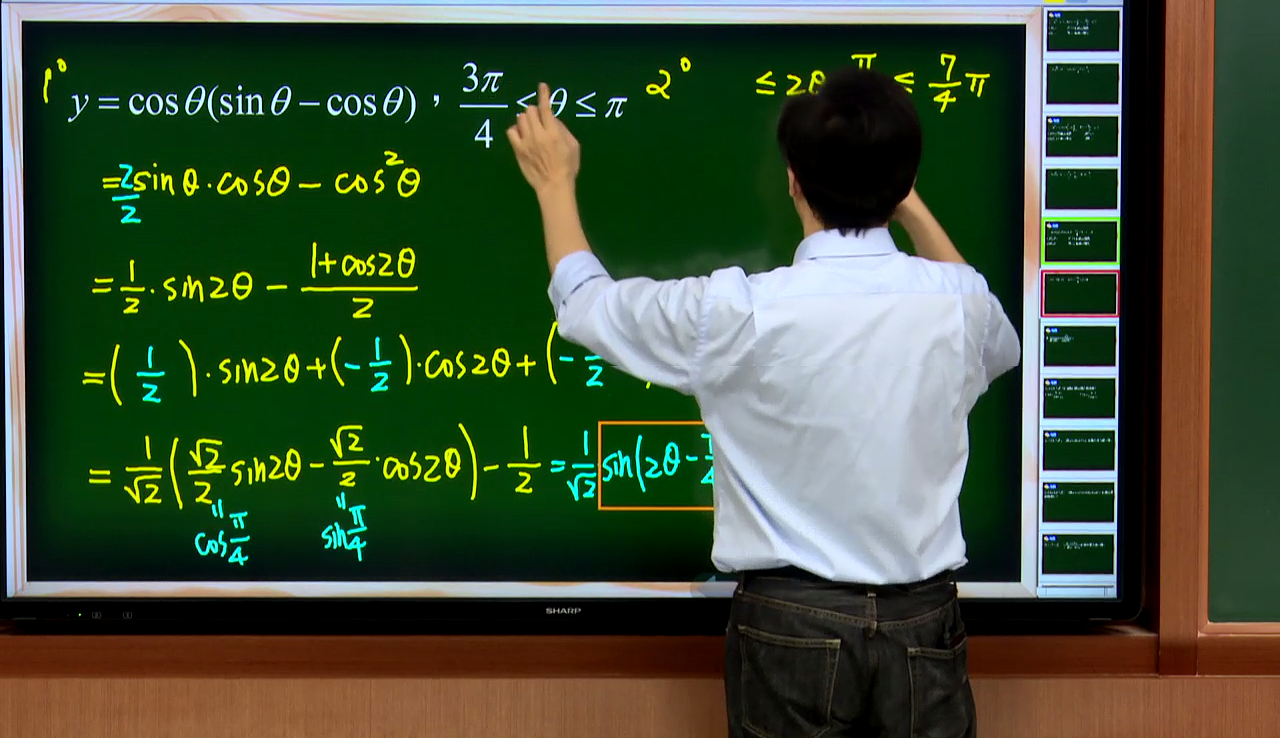 1° y = cosθ(sinθ − cosθ) , 3π/4 ≤ θ ≤ π
2° ≤ 2θ π ≤ 7/4 π
= 2/2 sinθ · cosθ − cos²θ
= 1/2 · sin2θ − (1+cos2θ)/2
= ( 1/2 ) · sin2θ + (−1/2) · cos2θ + (−1/2
= 1/√2 ( √2/2 sin2θ − √2/2 · cos2θ ) − 1/2 = 1/√2 sin(2θ −
" cos π/4 " sin π/4
SHARP